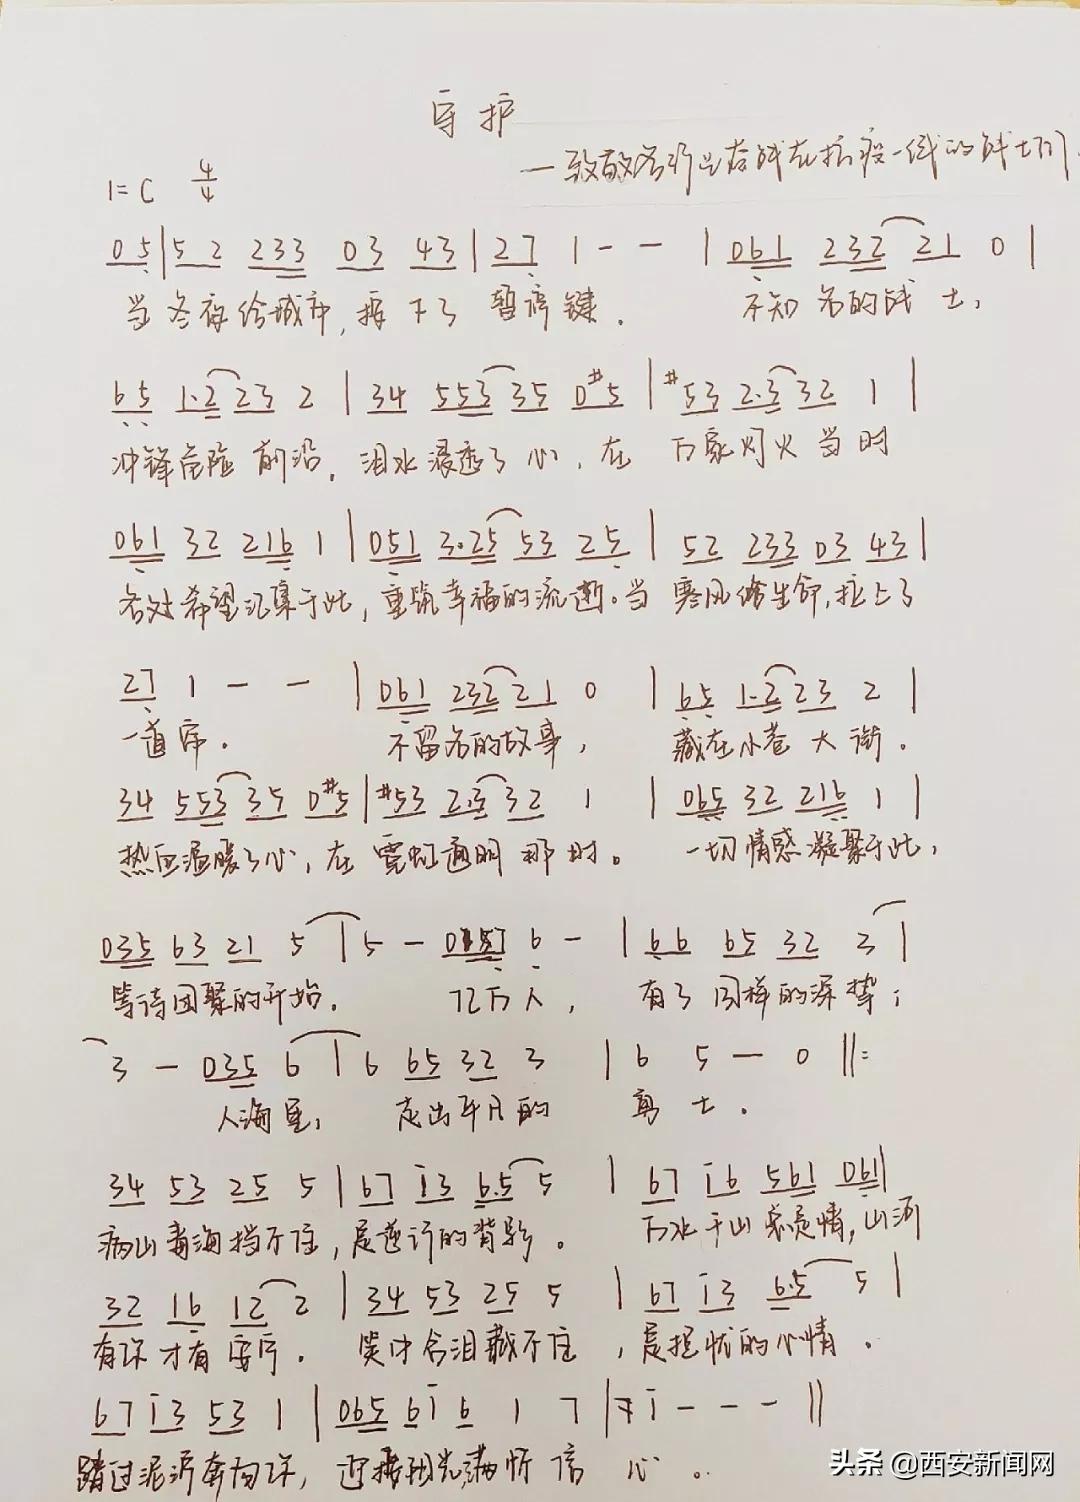 守护
—致敬各行业奋战在抗疫一线的战士们
1=C 4/4
0 5 | 5 2 2 3 3 0 3 4 3 | 2 7 1 - - | 0 6 1 2 3 2 2 1 0 |
当冬夜给城市,按下了 暂停键. 不知名的战士,
6 5 1·2 2 3 2 | 3 4 5 5 3 3 5 0 #5 | #5 3 2·3 3 2 1 |
冲锋危险前沿.泪水浸透了心,在万家灯火当时
0 6 1 3 2 2 1 6 1 | 0 5 1 3·2 5 5 3 2 5 | 5 2 2 3 3 0 3 4 3 |
各处希望汇集于此,重筑幸福的流逝。当寒风给生命,拉上了
2 7 1 - - | 0 6 1 2 3 2 2 1 0 | 6 5 1·2 2 3 2 |
一道帘. 不留名的故事, 藏在小巷大街.
3 4 5 5 3 3 5 0 #5 | #5 3 2·3 3 2 1 | 0 6 5 3 2 2 1 6 1 |
热血温暖了心,在霓虹通明那时。 一切情感凝聚于此,
0 3 5 6 3 2 1 5 | 5 - 0 6 - | 6 6 6 5 3 2 3 |
等待团聚的开始. 亿万人, 有了同样的深挚;
3 - 0 3 5 6 | 6 6 5 3 2 3 | 6 5 - 0 ‖:
人海里, 走出平凡的 勇士.
3 4 5 3 2 5 5 | 6 7 1 3 6·5 5 | 6 7 1 6 5 6 1 0 6 1 |
病山毒海挡不住,是逆行的背影。 万水千山总是情,山河
3 2 1 6 1 2 2 | 3 4 5 3 2 5 5 | 6 7 1 3 6·5 5 |
有你才有安宁. 笑中含泪藏不住,是担忧的心情.
6 7 1 3 5 3 1 | 0 6 5 6 1 6 1 7 | 7 1 - - - ‖
踏过泥泞奔向你,迎接阳光满怀信心。
头条 @西安新闻网